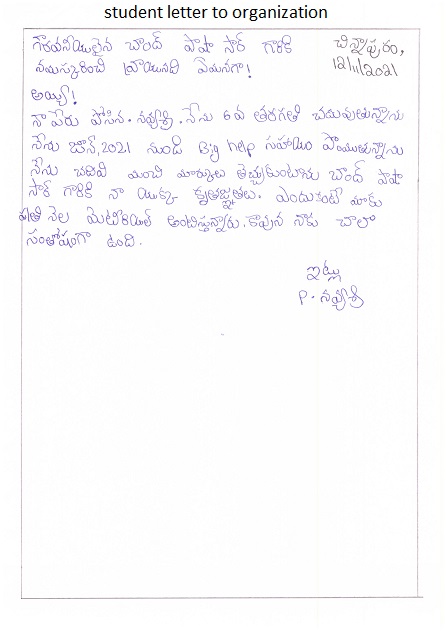 student letter to organization
గౌరవనీయులైన చాంద్ పాషా సార్ గారికి
చిన్నాపురం,
12/11/2021
నమస్కరించి వ్రాయునది ఏమనగా!
అయ్యా!
నా పేరు పోసిన. నవ్యశ్రీ. నేను 6వ తరగతి చదువుతున్నాను
నేను జూన్,2021 నుండి Big help సహాయం పొందుతున్నాను
నేను చదివి మంచి మార్కులు తెచ్చుకుంటాను చాంద్ పాషా
సార్ గారికి నా యొక్క కృతజ్ఞతలు. ఎందుకంటే మాకు
ప్రతి నెల మెటిరియల్ అందిస్తున్నారు. కావున నాకు చాలా
సంతోషంగా ఉంది.
ఇట్లు
P. నవ్యశ్రీ